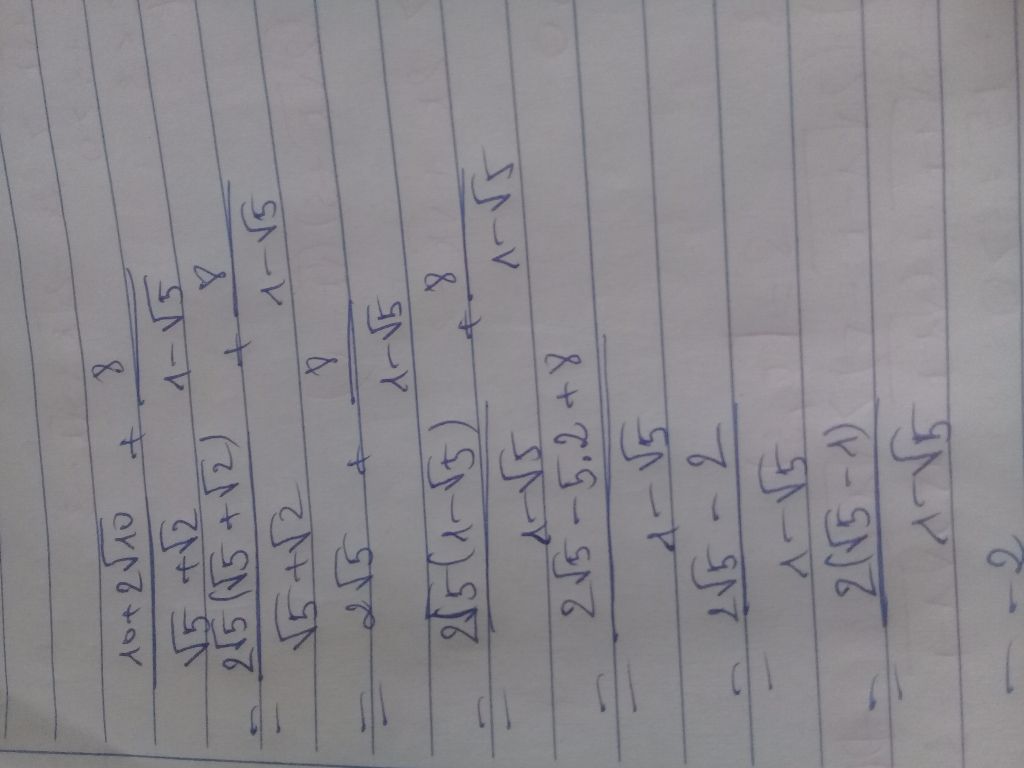 (10+2√10)/(√5+√2) + 8/(1-√5)
= 2√5(√5+√2)/(√5+√2) + 8/(1-√5)
= 2√5 + 8/(1-√5)
= 2√5(1-√5)/(1-√5) + 8/(1-√5)
= (2√5-5.2+8)/(1-√5)
= (2√5-2)/(1-√5)
= 2(√5-1)/(1-√5)
= -2